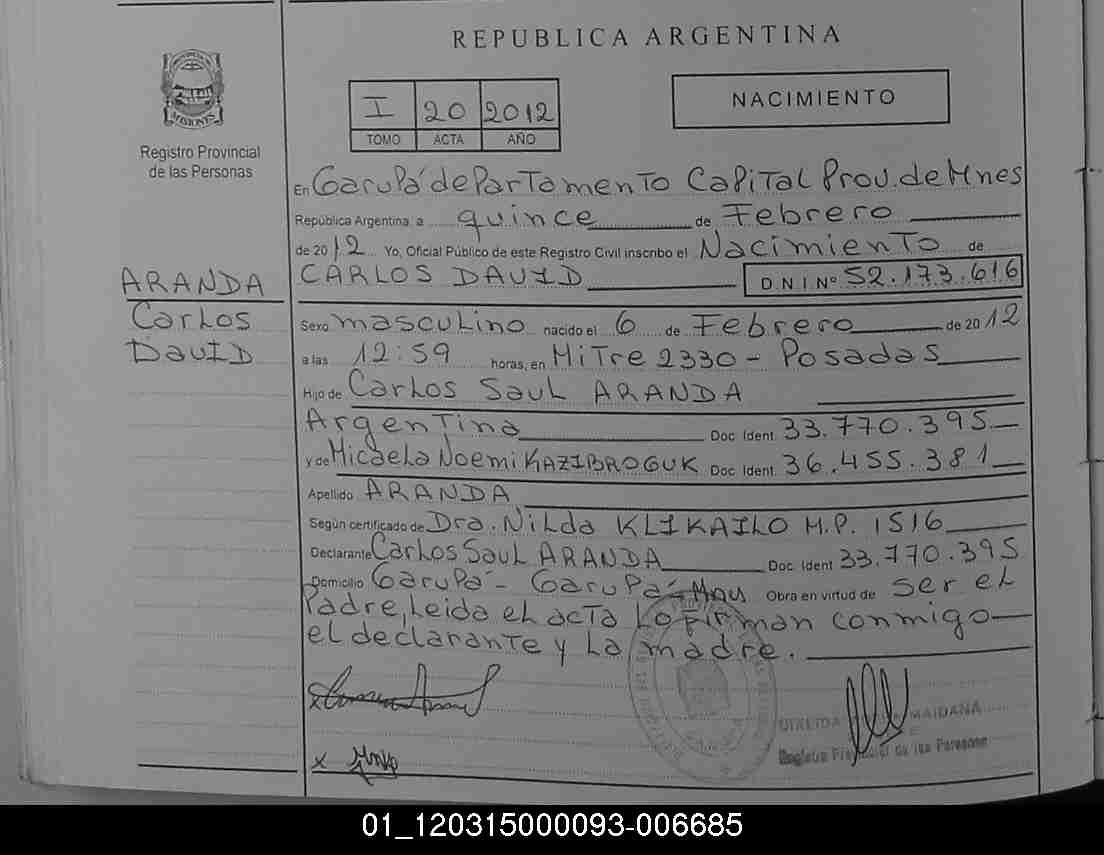 REPUBLICA ARGENTINA
MISIONES
Registro Provincial
de las Personas
I 20 2012
TOMO ACTA AÑO
NACIMIENTO
En Garupá departamento Capital Prov. de Mnes
República Argentina a quince de Febrero
de 2012 Yo, Oficial Público de este Registro Civil inscribo el Nacimiento de
CARLOS DAVID D N I Nº 52.173.616
ARANDA
Carlos
David
Sexo masculino nacido el 6 de Febrero de 2012
a las 12:59 horas, en Mitre 2330 - Posadas
Hijo de Carlos Saul ARANDA
Argentina Doc Ident. 33.770.395
y de Micaela Noemi KAZIBROGUK Doc Ident. 36.455.381
Apellido ARANDA
Según certificado de Dra. Nilda KLIKAILO M.P. 1516
Declarante Carlos Saul ARANDA Doc Ident 33.770.395
Domicilio Garupá - Garupá - Obra en virtud de ser el
Padre, Leida el acta Lo firman conmigo
el declarante y la madre.
MAIDANA
Registro Provincial de las Personas
01_120315000093-006685